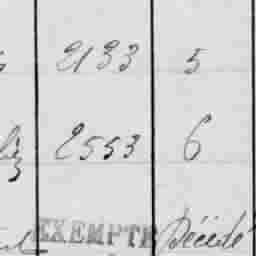 2133 5
2553 6
EXEMPTÉ Décédé